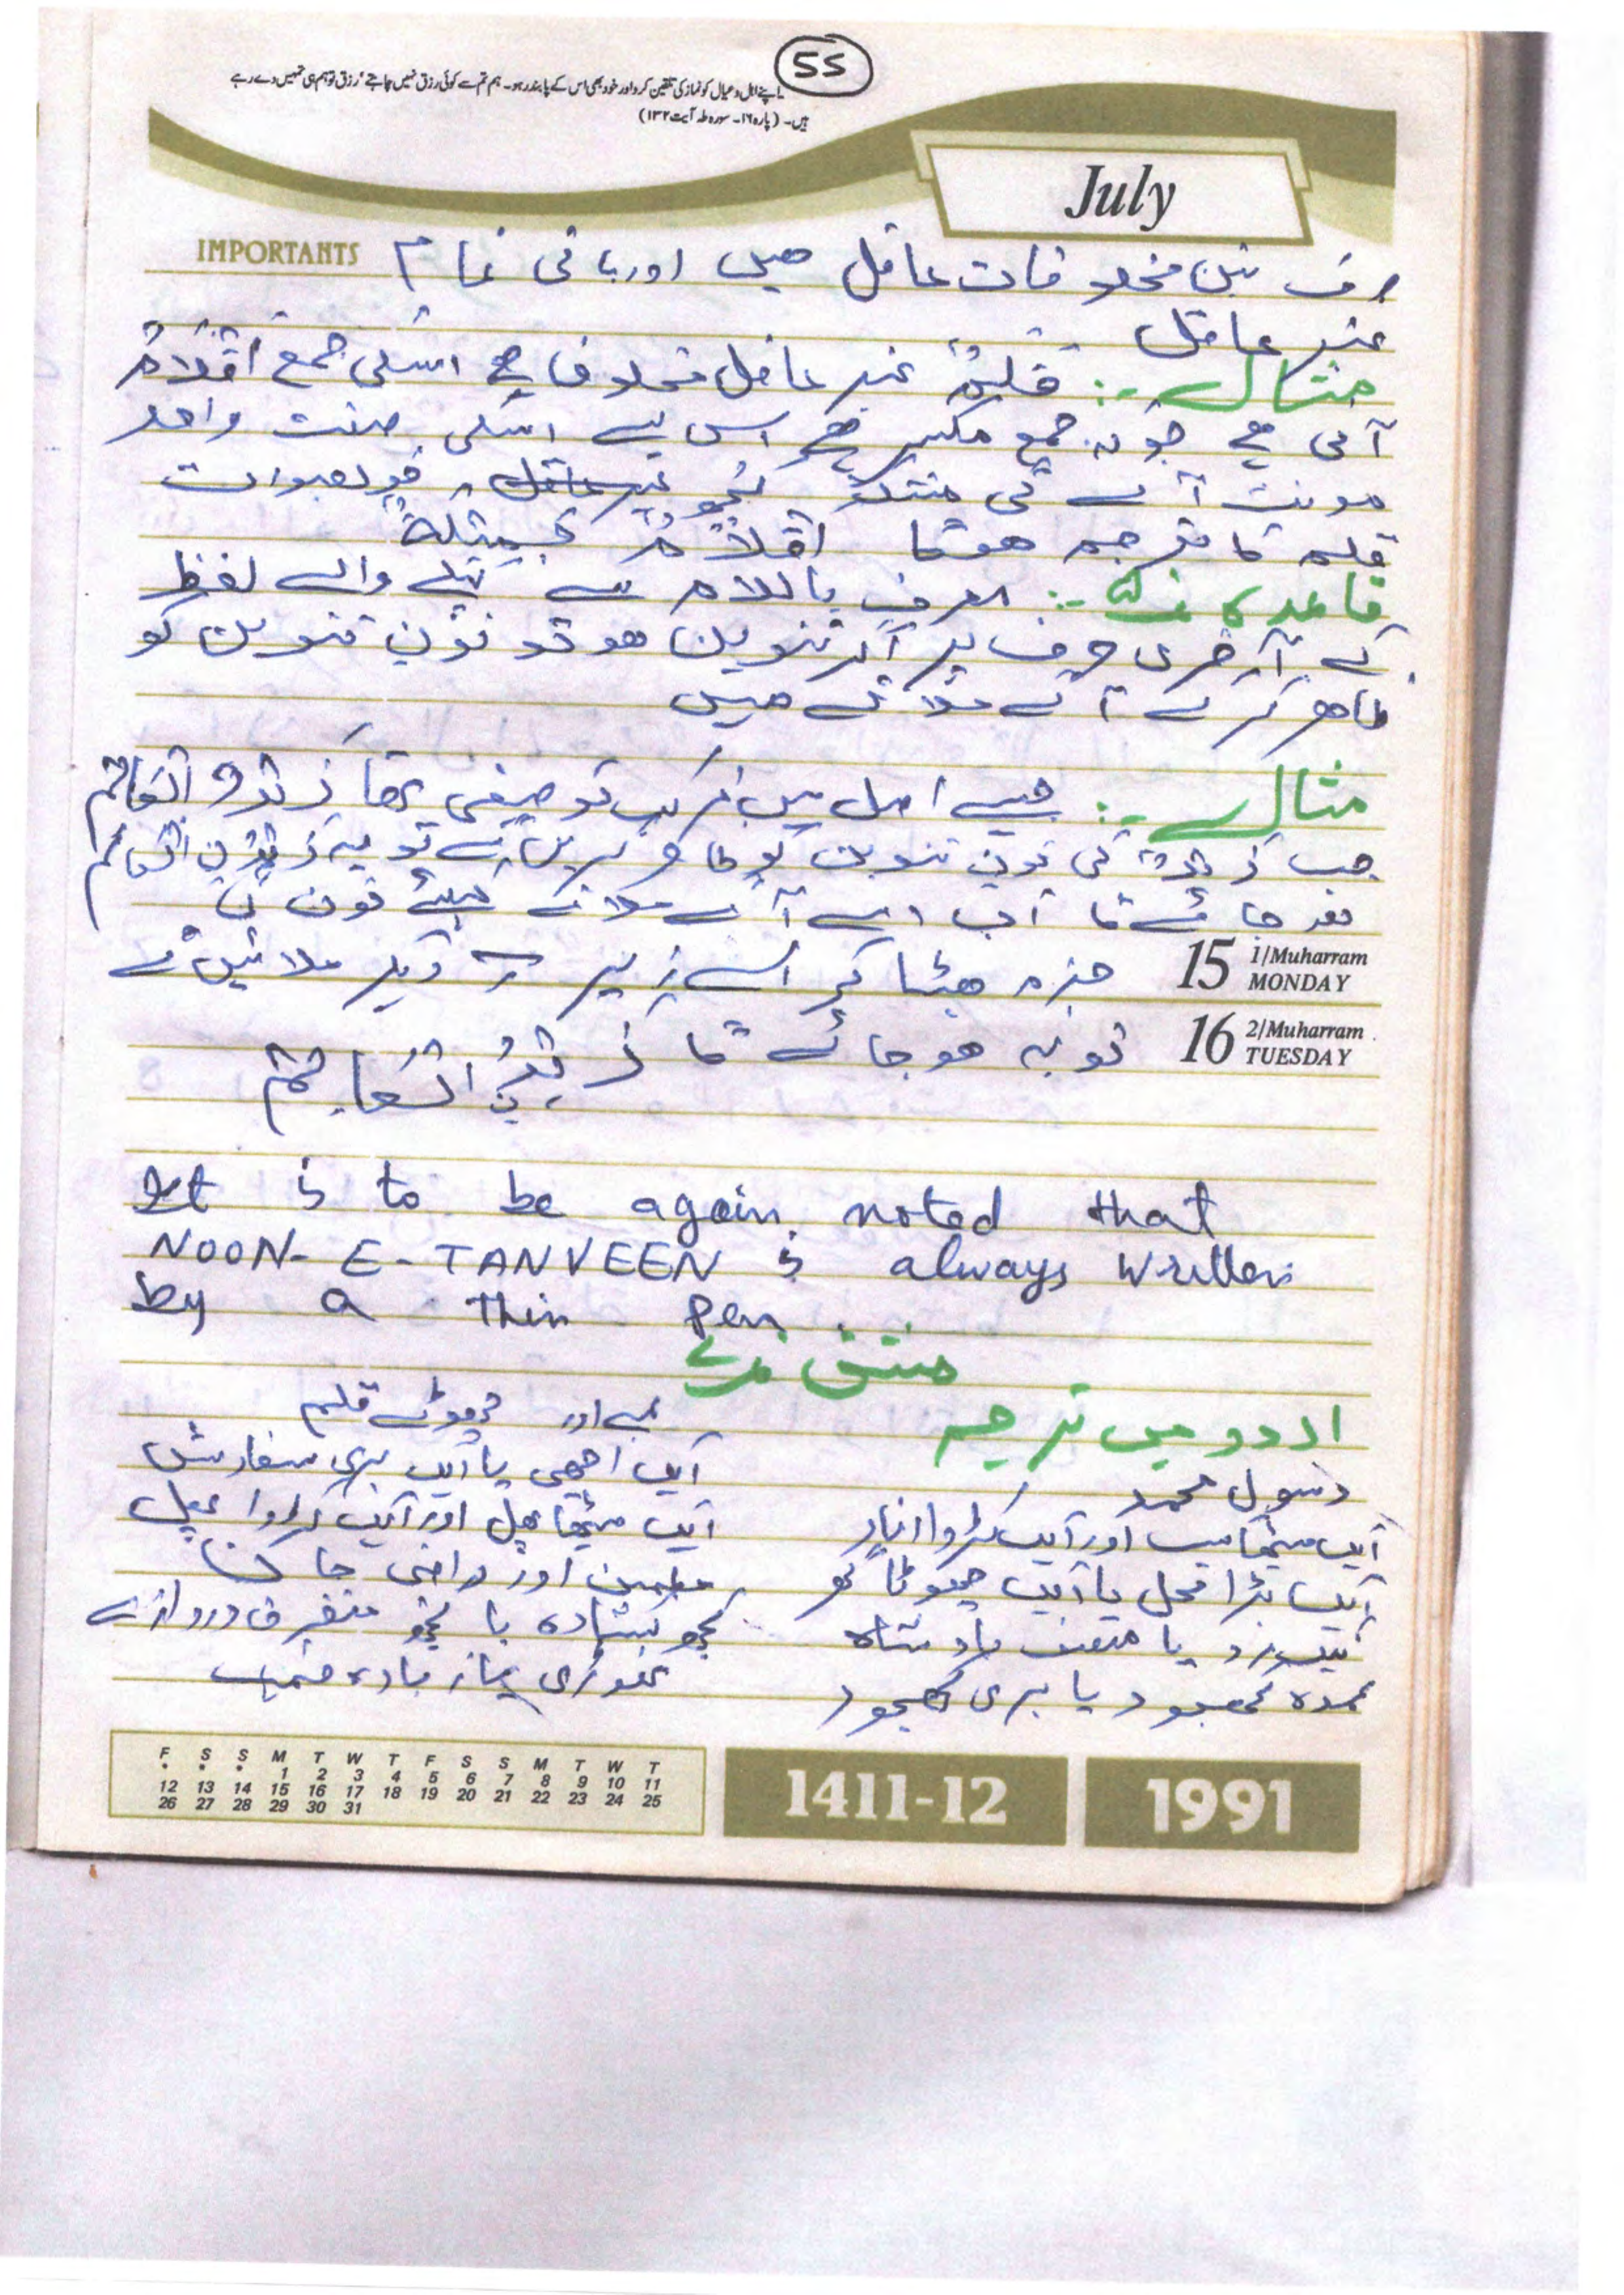 55
اپنے اہل و عیال کو نماز کی تلقین کرو اور خود بھی اس کے پابند رہو۔ ہم تم سے کوئی رزق نہیں چاہتے‘ رزق تو ہم ہی تمہیں دے رہے
ہیں۔ (پارہ ۱۶۔ سورہ طہ آیت ۱۳۲)
July
IMPORTANTS
صرف تین مخلوقات عاقل ھیں اور باقی تمام
غیر عاقل
مثال :۔ قلمٌ غیر عاقل مخلوق ھے اسکی جمع اقلامٌ
آتی ھے جو کہ جمع مکسر ھے اس لیے اسکی صفت واحد
مونث آئے گی مثلاً کچھ خوبصورت
قلم کا ترجمہ ھوگا اقلامٌ جمیلةٌ
قاعدہ :۔ معرف باللام سے پہلے والے لفظ
کے آخری حرف پر اگر تنوین ھو تو نون تنوین کو
ظاھر کرکے آگے ملاتے ھیں
مثال :۔ جیسے اصل میں ترکیب توصیفی تھا زیدٌ العالم
جب زیدٌ کی نون تنوین کو ظاھر کریں گے تو یہ زیدن العالم
ھو جائے گا اب اسے آگے ملانے کیلئے نون کی
15 1/Muharram MONDAY جزم ھٹا کر اسے زیر دیکر ملائیں گے
16 2/Muharram TUESDAY تو یہ ھو جائے گا زیدن العالم
It is to be again noted that
NOON-E-TANVEEN is always written
by a thin pen.
مشق
اردو میں ترجمہ
رسول محمد
ایک میٹھا سیب اور ایک کڑوا انار
ایک بڑا محل یا ایک چھوٹا گھر
یا منصف بادشاہ
عمدہ کھجور یا بری کھجور
لمبے اور چھوٹے قلم
ایک اچھی یا ایک بری سفارش
ایک میٹھا پھل اور ایک کڑوا پھل
مطمئن اور راضی جان
کچھ کشادہ یا کچھ متفرق دروازے
تھوڑی یا زیادہ قیمت
F S S M T W T F S S M T W T
• • • 1 2 3 4 5 6 7 8 9 10 11
12 13 14 15 16 17 18 19 20 21 22 23 24 25
26 27 28 29 30 31
1411-12
1991